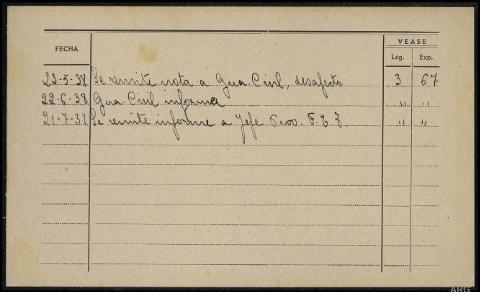 VEASE
FECHA Leg. Exp.
23-5-38 Se remite nota a Gua. Civil, desafecto 3 67
22-6-38 Gua. Civil informa " "
21-7-38 Se remite informe a Jefe Prov. F.E.T. " "
ARG